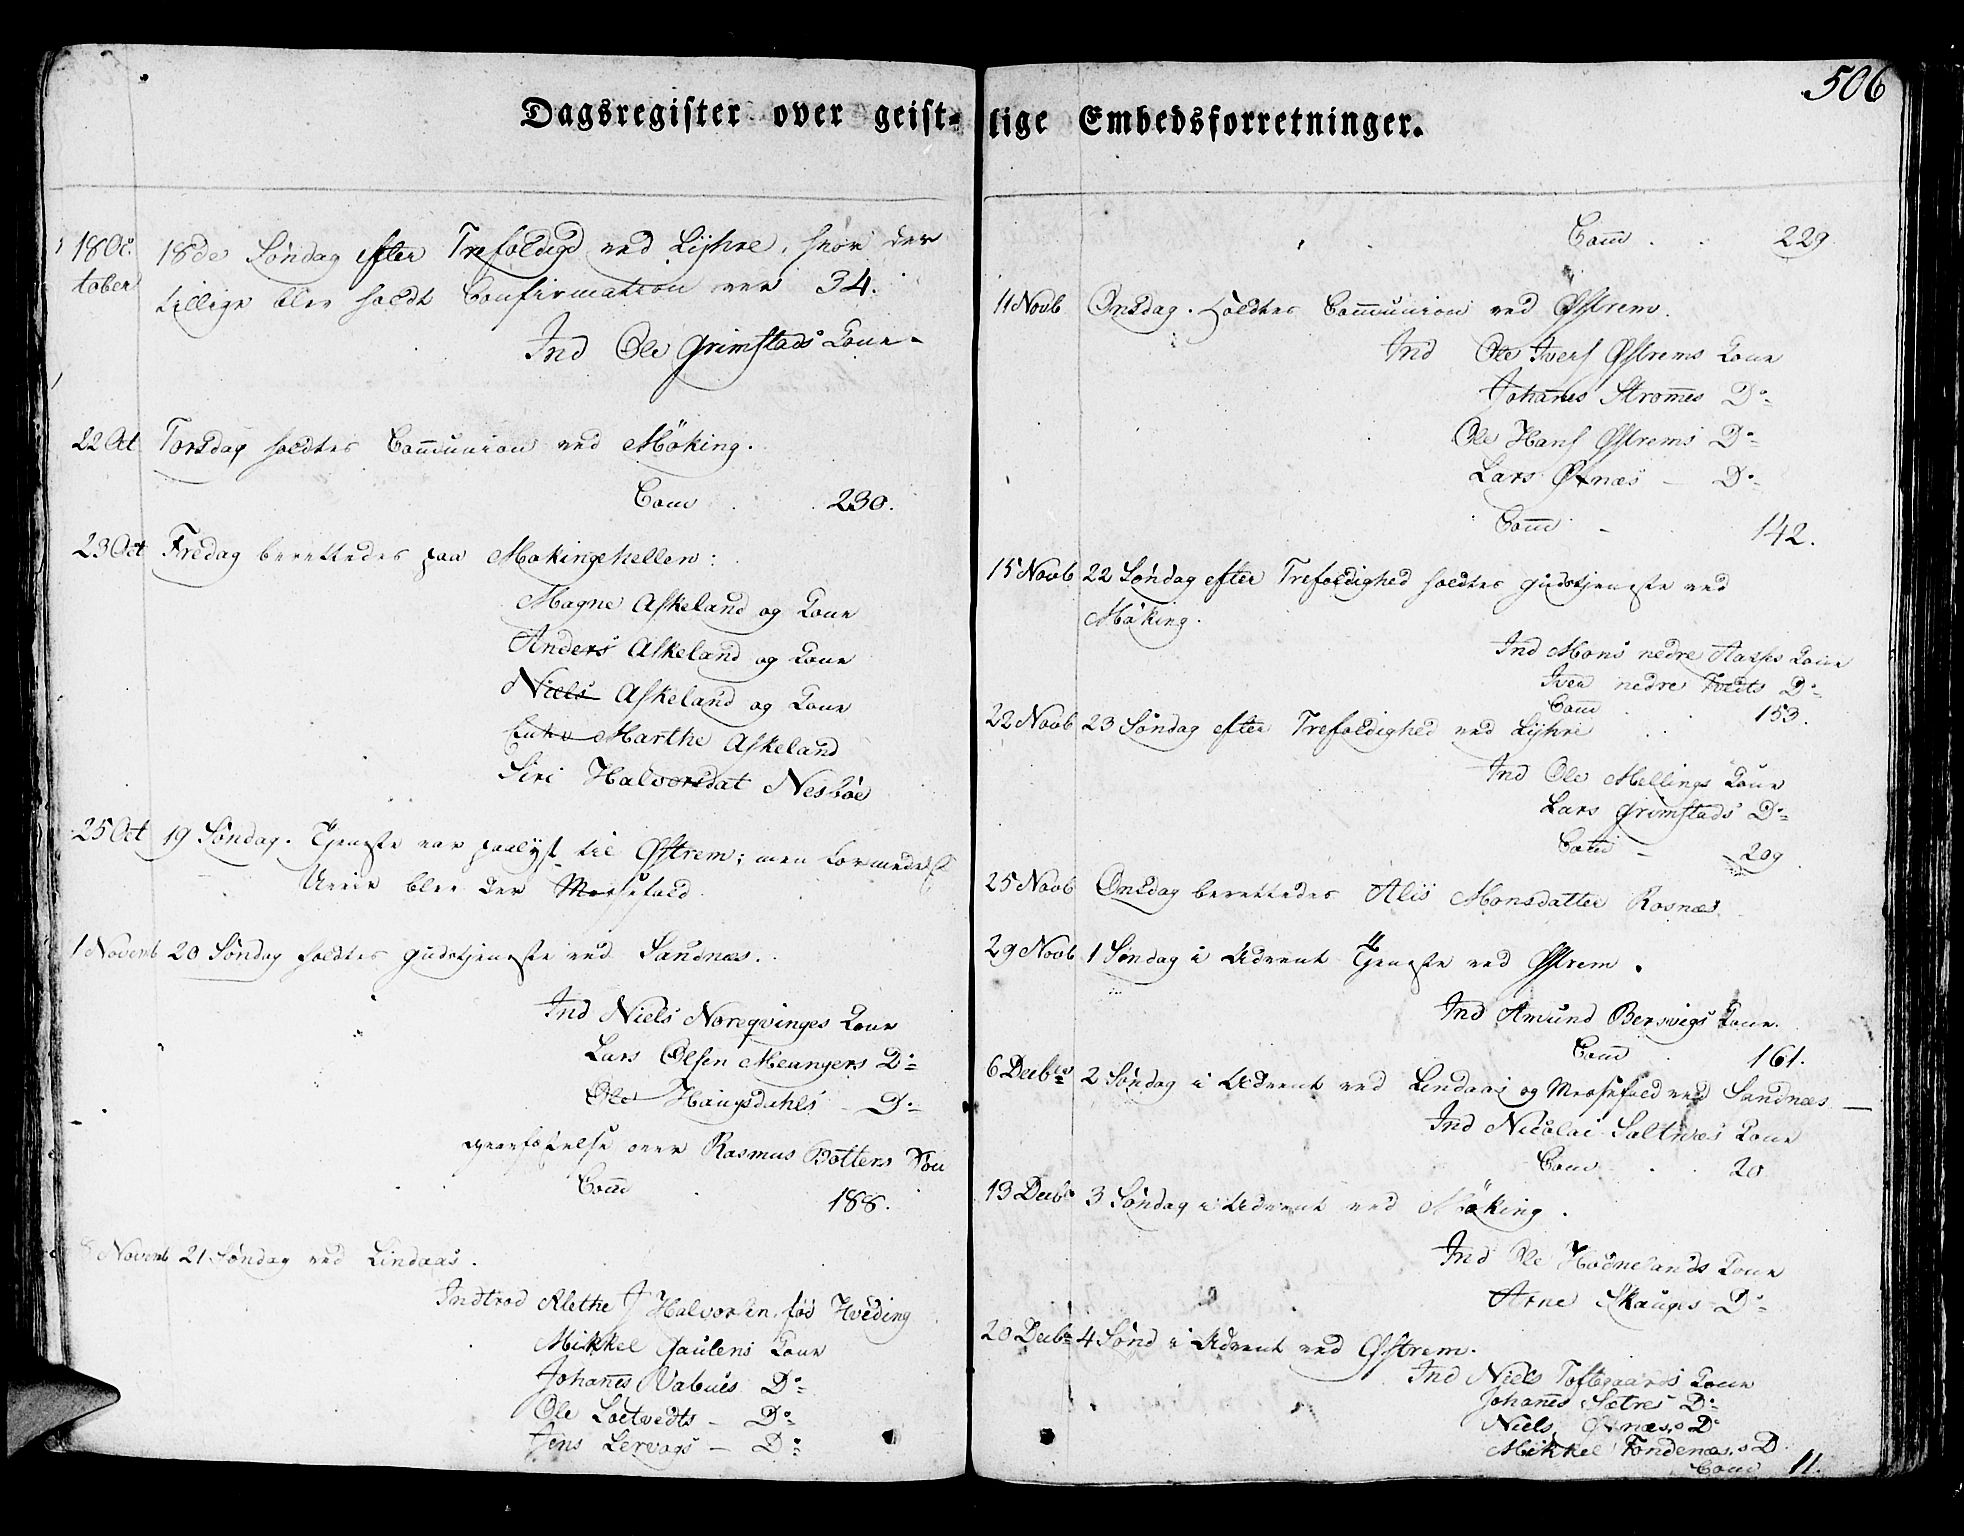 506
Dagsregister over geist-lige Embedsforretninger.
18 Oc- 18de Søndag efter Trefoldigh ved Lÿhre, hvor der
tober tillige blev holdt Confirmation over 34.
Ind Ole Grimstads Kone -
22 Oct Torsdag holdtes Communion ved Möking.
Com 230.
23 Oct Fredag berettedes paa Mokingehellen:
Magne Askeland og Kone
Anders Askeland og Kone
Niels Askeland og Kone
Enke Marthe Askeland
Siri Halvorsdat Nesbøe
25 Oct 19 Søndag. Tjeneste var paalyst til Østrem; men formedelst
Uveir blev der Messefald
1 Novemb 20 Søndag holdtes Gudstjeneste ved Sandnæs.
Ind Niels Noreqvinges Kone
Lars Olsen Meangers Do
Ole Haugsdahls - Do
Rasmus Botters
Com 188.
8 Novemb 21 Søndag ved Lindaas.
Indtrod Alethe J Halvorsen fød Hveding
Mikkel Gaulens Kone
Johanes Vabues Do
Ole Loetvedts - Do
Jens Lervags - Do
Com 229
11 Novb Onsdag. Holdtes Communion ved Østrem.
Ind Ole Ivers Østrems Kone
Johanes Stromes Do
Ole Hans Østrems Do
Lars Øxnæs - Do
Com - 142.
15 Novb 22 Søndag efter Trefoldighed holdtes Gudstjeneste ved
Möking.
Ind Mons nedre Kone
Iver nedre Kvedts Do
Com 153.
22 Novb 23 Søndag efter Trefoldighed ved Lÿhre
Ind Ole Mellings Kone
Lars Grimstads Do
Com - 209
25 Novb Onsdag berettedes Alis Monsdatter Rosnæs
29 Novb 1 Søndag i Advent Tjeneste ved Østrem.
Ind Amund Bersvigs Kone.
Com 161.
6 Decbr 2 Søndag i Advent ved Lindaas og Messefald ved Sandnæs -
Ind Nicolai Saltnæs Kone
Com 20
13 Decbr 3 Søndag i Advent ved Möking.
Ind Ole Hodnelands Kone
Arne Skauges Do
20 Decbr 4 Sønd i Advent ved Østrem.
Ind Niels Toftegaards Kone
Johanes Sætres Do
Niels Øxnæs,s Do
Mikkel Fondenæs,s D
Com 11.